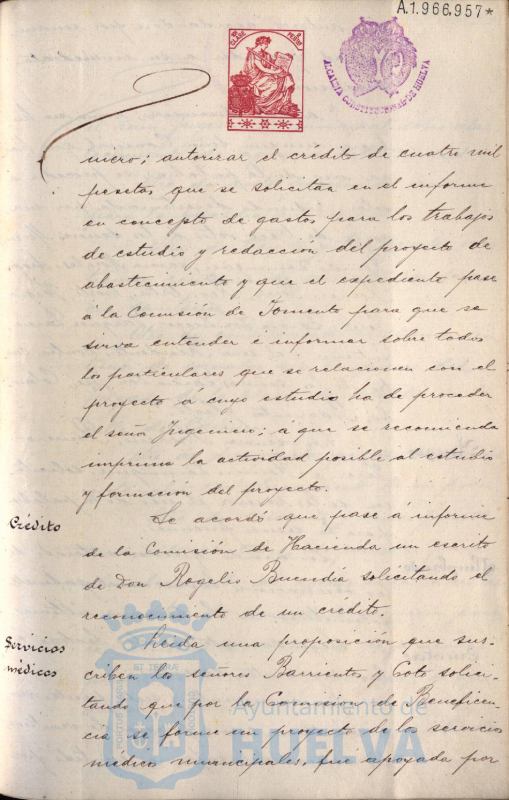 A.1.966.957*
10ª CLASE
ALCALDIA CONSTITUCIONAL DE HUELVA
niero; autorizar el crédito de cuatro mil
pesetas que se solicitan en el informe
en concepto de gastos para los trabajos
de estudio y redacción del proyecto de
abastecimiento y que el expediente pase
á la Comisión de Fomento para que se
sirva entender e informar sobre todos
los particulares que se relacionen con el
proyecto á cuyo estudio ha de proceder
el señor Ingeniero; a que se recomienda
imprima la actividad posible al estudio
y formación del proyecto.
Crédito
Se acordó que pase á informe
de la Comisión de Hacienda un escrito
de Don Rogelio Buendia solicitando el
reconocimiento de un crédito.
Servicios
médicos
Leida una proposición que sus-
criben los señores Barrientos y Coto solici-
tando que por la Comision de Beneficen-
cia se forme un proyecto de los servicios
medicos municipales, fué apoyada por
Ayuntamiento de
HUELVA